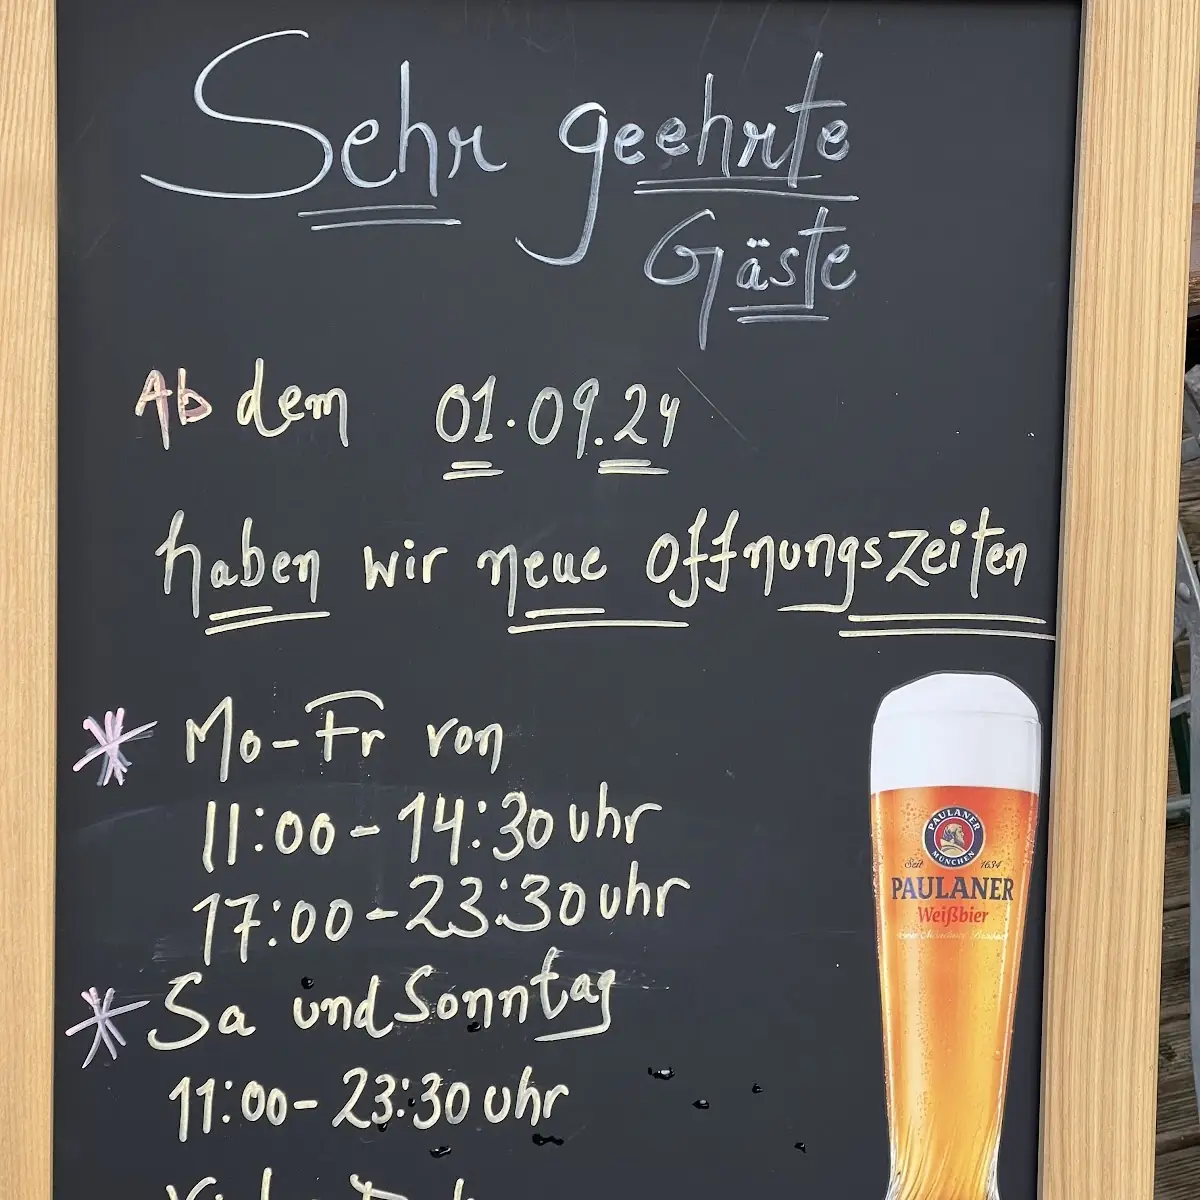 Sehr geehrte
Gäste
Ab dem 01.09.24
haben wir neue Offnungszeiten
* Mo-Fr von
11:00-14:30 uhr
17:00-23:30 uhr
* Sa und Sonntag
11:00-23:30 uhr
PAULANER
MÜNCHEN
Seit 1634
PAULANER
Weißbier